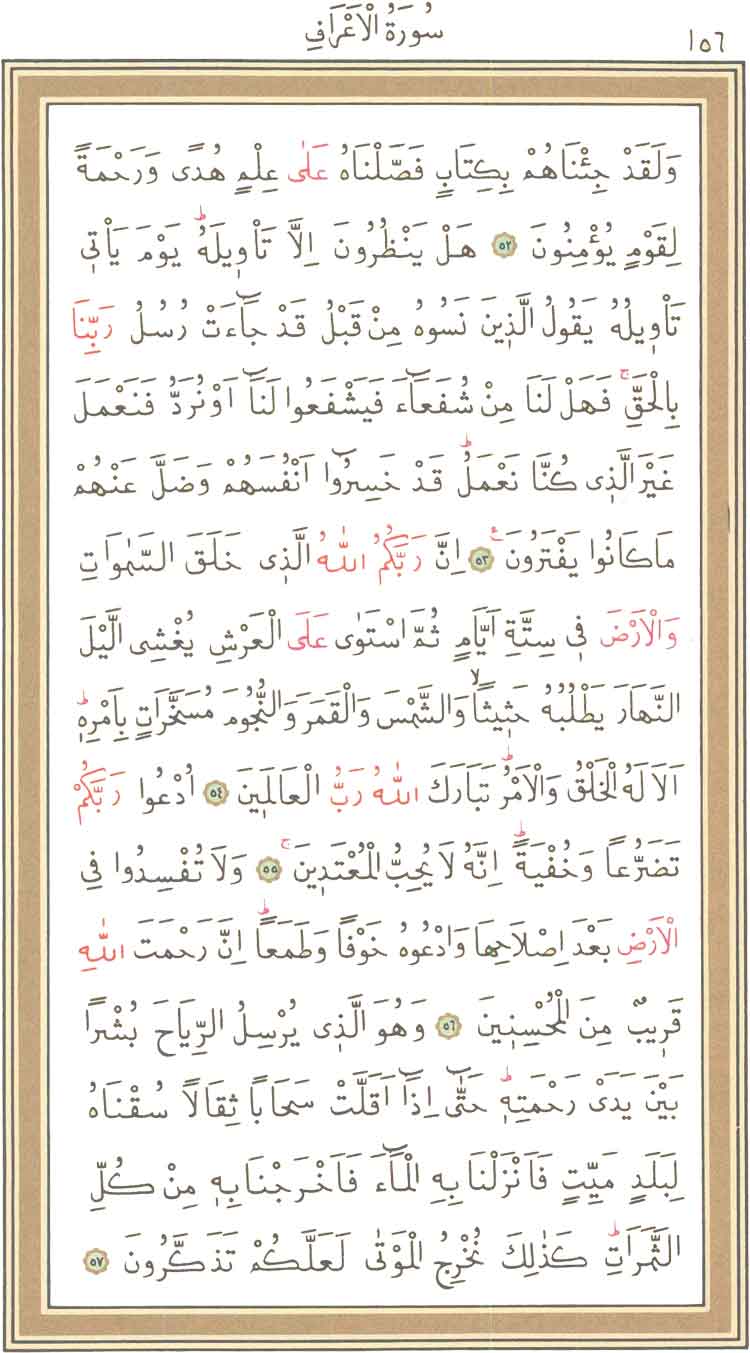 سُورَةُ الْاَعْرَافِ
١٥٦
وَلَقَدْ جِئْنَاهُمْ بِكِتَابٍ فَصَّلْنَاهُ عَلٰى عِلْمٍ هُدًى وَرَحْمَةً
لِقَوْمٍ يُؤْمِنُونَ ٥٢ هَلْ يَنْظُرُونَ اِلَّا تَأْو۪يلَهُۜ يَوْمَ يَأْت۪ي
تَأْو۪يلُهُ يَقُولُ الَّذ۪ينَ نَسُوهُ مِنْ قَبْلُ قَدْ جَٓاءَتْ رُسُلُ رَبِّنَا
بِالْحَقِّۚ فَهَلْ لَنَا مِنْ شُفَعَٓاءَ فَيَشْفَعُوا لَنَٓا اَوْ نُرَدُّ فَنَعْمَلَ
غَيْرَ الَّذ۪ي كُنَّا نَعْمَلُۜ قَدْ خَسِرُٓوا اَنْفُسَهُمْ وَضَلَّ عَنْهُمْ
مَا كَانُوا يَفْتَرُونَ۟ ٥٣ اِنَّ رَبَّكُمُ اللّٰهُ الَّذ۪ي خَلَقَ السَّمٰوَاتِ
وَالْاَرْضَ ف۪ي سِتَّةِ اَيَّامٍ ثُمَّ اسْتَوٰى عَلَى الْعَرْشِ يُغْشِي الَّيْلَ
النَّهَارَ يَطْلُبُهُ حَث۪يثاًۙ وَالشَّمْسَ وَالْقَمَرَ وَالنُّجُومَ مُسَخَّرَاتٍ بِاَمْرِه۪ۜ
اَلَا لَهُ الْخَلْقُ وَالْاَمْرُۜ تَبَارَكَ اللّٰهُ رَبُّ الْعَالَم۪ينَ ٥٤ اُدْعُوا رَبَّكُمْ
تَضَرُّعاً وَخُفْيَةًۜ اِنَّهُ لَا يُحِبُّ الْمُعْتَد۪ينَۚ ٥٥ وَلَا تُفْسِدُوا فِي
الْاَرْضِ بَعْدَ اِصْلَاحِهَا وَادْعُوهُ خَوْفاً وَطَمَعاًۜ اِنَّ رَحْمَتَ اللّٰهِ
قَر۪يبٌ مِنَ الْمُحْسِن۪ينَ ٥٦ وَهُوَ الَّذ۪ي يُرْسِلُ الرِّيَاحَ بُشْراً
بَيْنَ يَدَيْ رَحْمَتِه۪ۜ حَتّٰٓى اِذَٓا اَقَلَّتْ سَحَاباً ثِقَالاً سُقْنَاهُ
لِبَلَدٍ مَيِّتٍ فَاَنْزَلْنَا بِهِ الْمَٓاءَ فَاَخْرَجْنَا بِه۪ مِنْ كُلِّ
الثَّمَرَاتِۜ كَذٰلِكَ نُخْرِجُ الْمَوْتٰى لَعَلَّكُمْ تَذَكَّرُونَ ٥٧